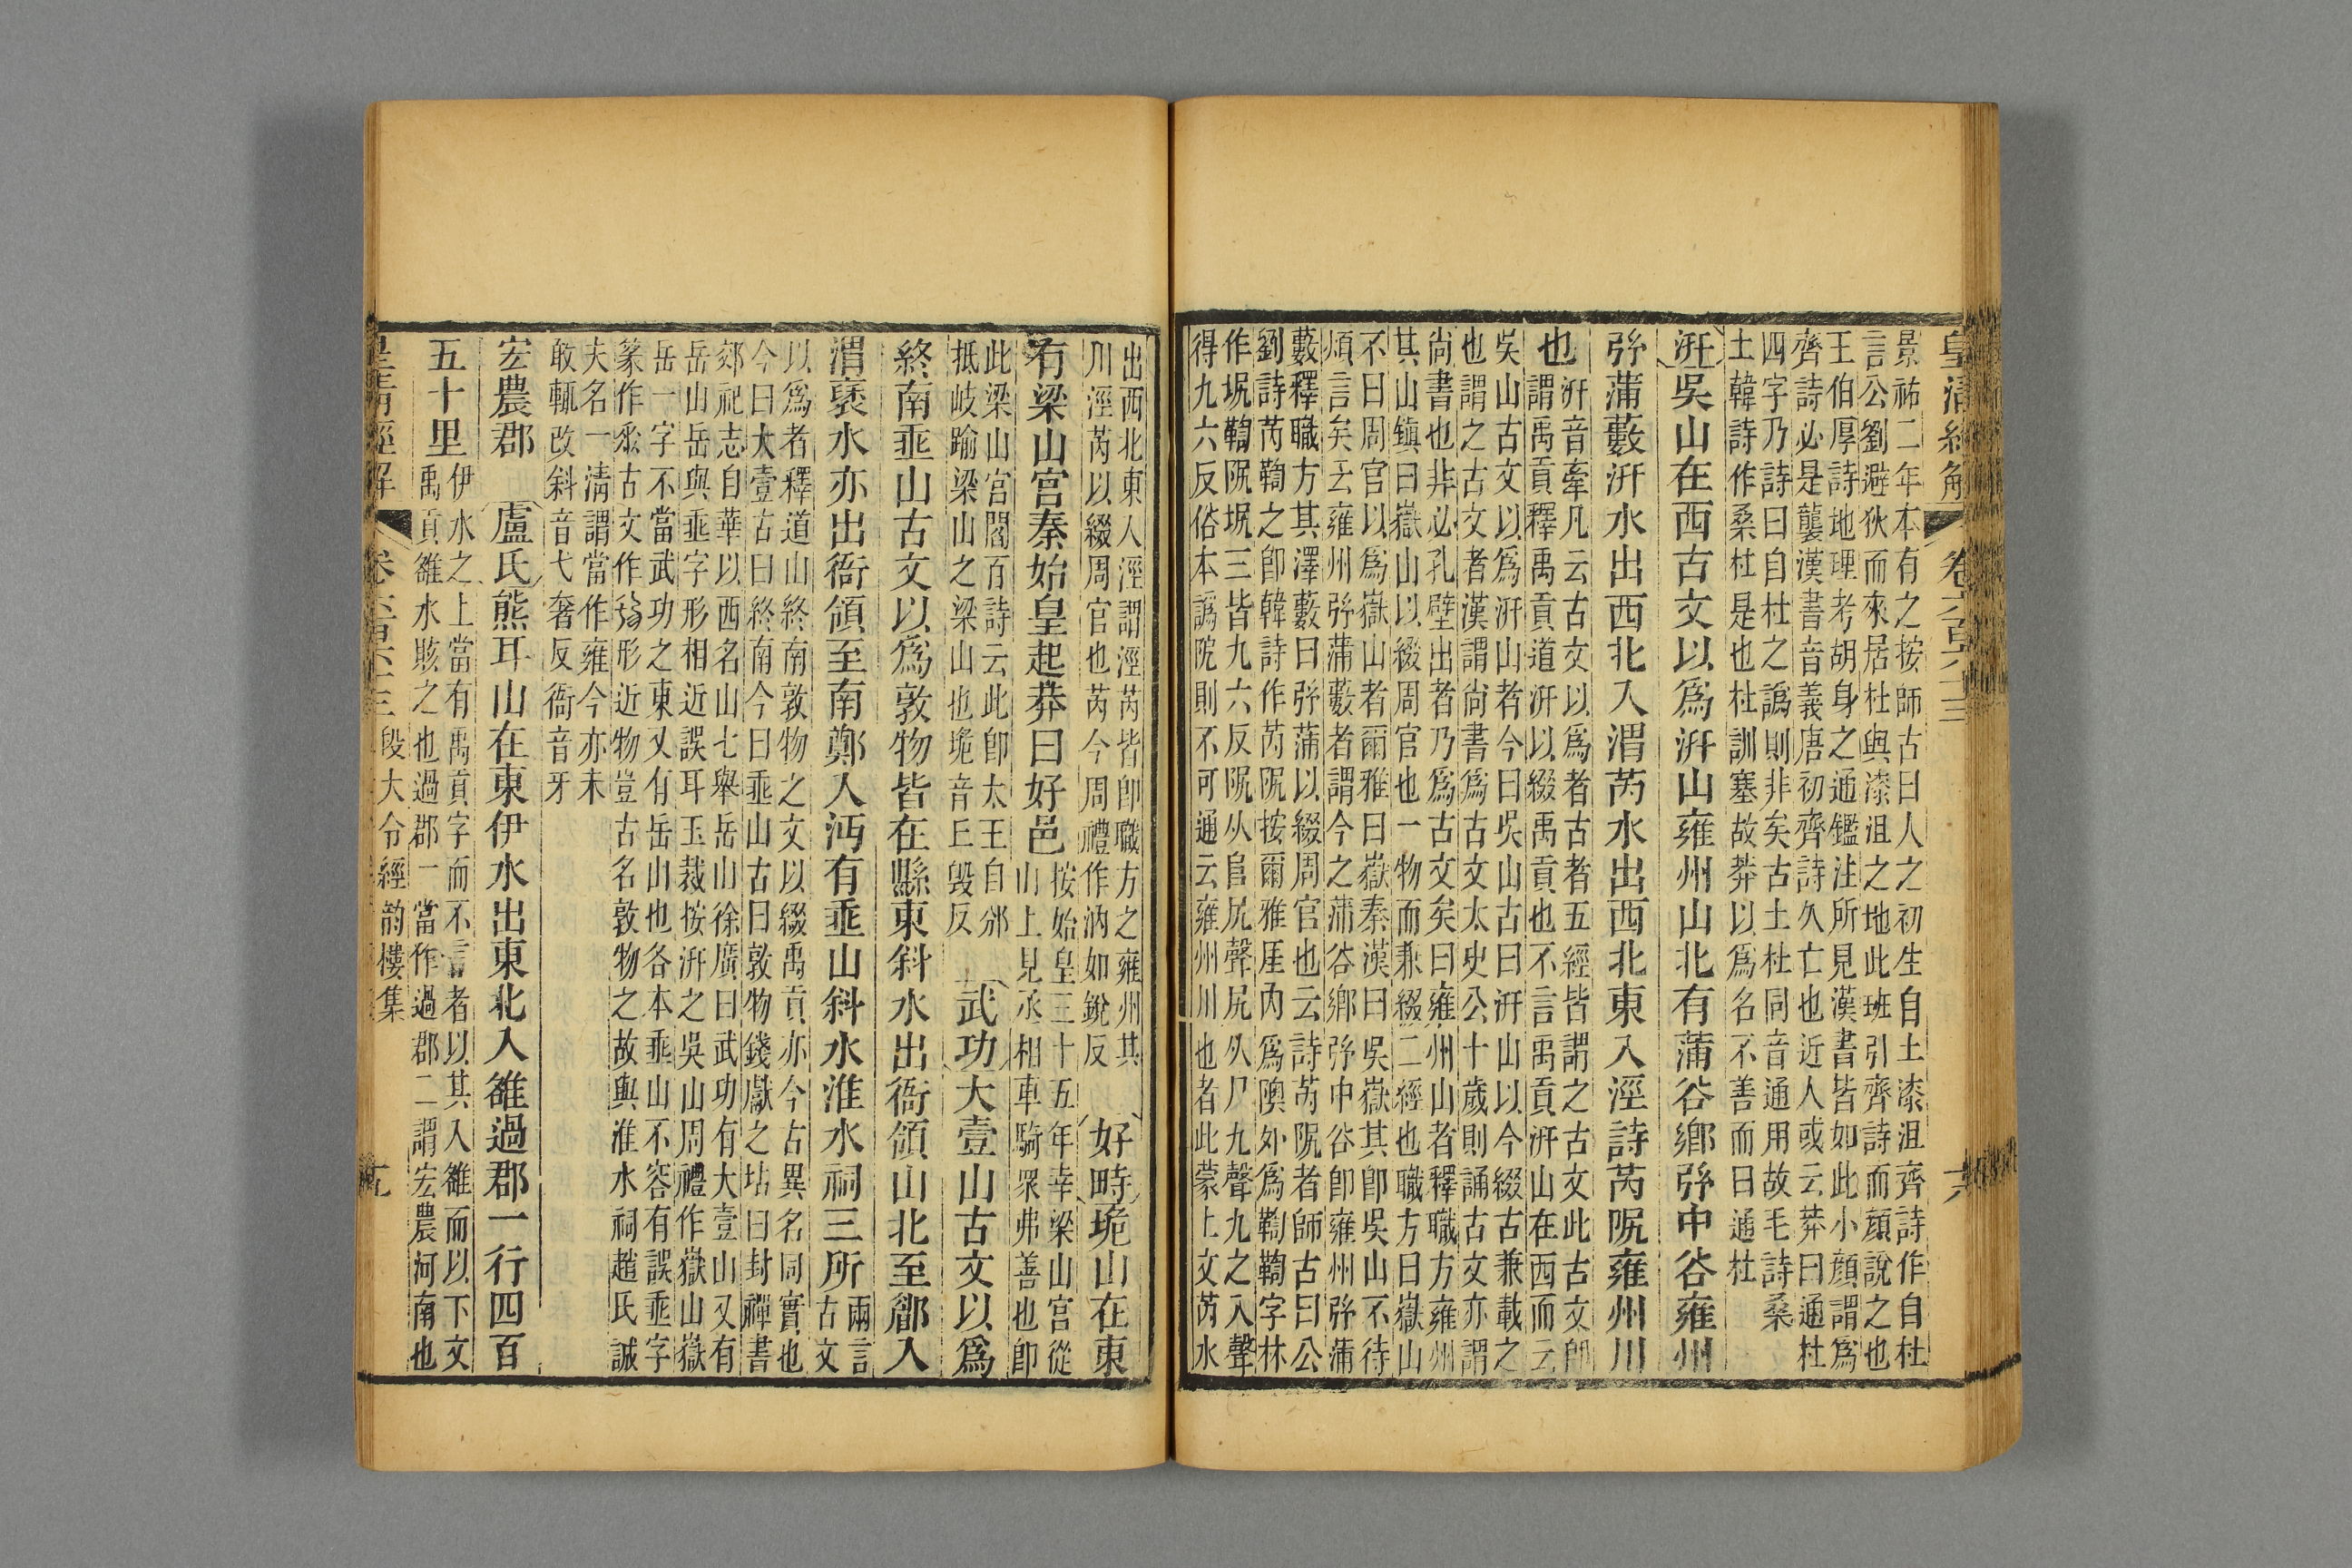 皇清經解 卷六百六十三 六
景祐二年本有之按師古曰人之初生自土漆沮齊詩作自杜
言公劉避狄而來居杜與漆沮之地此班引齊詩而顏說之也
王伯厚詩地理考胡身之通鑑注所見漢書皆如此小顏謂爲
齊詩必是襲漢書音義唐初齊詩久亡也近人或云莽曰通杜
四字乃詩曰自杜之譌則非矣古土杜同音通用故毛詩桑
土韓詩作桑杜是也杜訓塞故莽以爲名不善而曰通杜
汧吳山在西古文以爲汧山雍州山北有蒲谷鄉弦中谷雍州
弦蒲藪汧水出西北入渭芮水出西北東入涇詩芮阮雍州川
也汧音牽凡云古文以爲者古者五經皆謂之古文此古文卽
謂禹貢釋禹貢道汧以綴禹貢也不言禹貢汧山在西而云
吳山古文以爲汧山者今曰吳山古曰汧山以今綴古兼載之
也謂之古文者漢謂尚書爲古文太史公十歲則誦古文亦謂
尚書也非必孔壁出者乃爲古文矣曰雍州山者釋職方雍州
其山鎭曰嶽山以綴周官也一物而兼綴二經也職方曰嶽山
不曰周官以爲嶽山者爾雅曰嶽秦漢曰吳嶽其卽吳山不待
煩言矣云雍州弦蒲藪者謂今之蒲谷鄉弦中谷卽雍州弦蒲
藪釋職方其澤藪曰弦蒲以綴周官也云詩芮阮者師古曰公
劉詩芮鞫之卽韓詩作芮阮按爾雅厓內爲隩外爲鞫鞫字林
作坭鞫阮坭三皆九六反阮从𠂤尻聲尻从尸九聲九之入聲
得九六反俗本譌阮則不可通云雍州川也者此蒙上文芮水
出西北東入涇謂涇芮皆卽職方之雍州其
川涇芮以綴周官也芮今周禮作汭如銳反
好畤垝山在東
有梁山宮秦始皇起莽曰好邑按始皇三十五年幸梁山宮從
山上見丞相車騎眾弗善也卽
此梁山宮閻百詩云此卽太王自邠
抵岐踰梁山之梁山也垝音丘毀反
武功大壹山古文以爲
終南垂山古文以爲敦物皆在縣東斜水出衙領山北至郿入
渭褱水亦出衙領至南鄭入沔有垂山斜水淮水祠三所兩言
古文
以爲者釋道山終南敦物之文以綴禹貢亦今古異名同實也
今曰大壹古曰終南今曰垂山古曰敦物錢獻之坫曰封禪書
郊祀志自華以西名山七舉岳山徐廣曰武功有大壹山又有
岳山岳與垂字形相近誤耳玉裁按汧之吳山周禮作嶽山嶽
岳一字不當武功之東又有岳山也各本垂山不容有誤垂字
篆作𠂹古文作𠣔形近物豈古名敦物之故與淮水祠趙氏誠
夫名一清謂當作雍今亦未
敢輒改斜音弋奢反衙音牙
宏農郡
盧氏熊耳山在東伊水出東北入雒過郡一行四百
五十里伊水之上當有禹貢字而不言者以其入雒而以下文
禹貢雒水賅之也過郡一當作過郡二謂宏農河南也
皇清經解 卷六百六十三 段大令經韵樓集 九